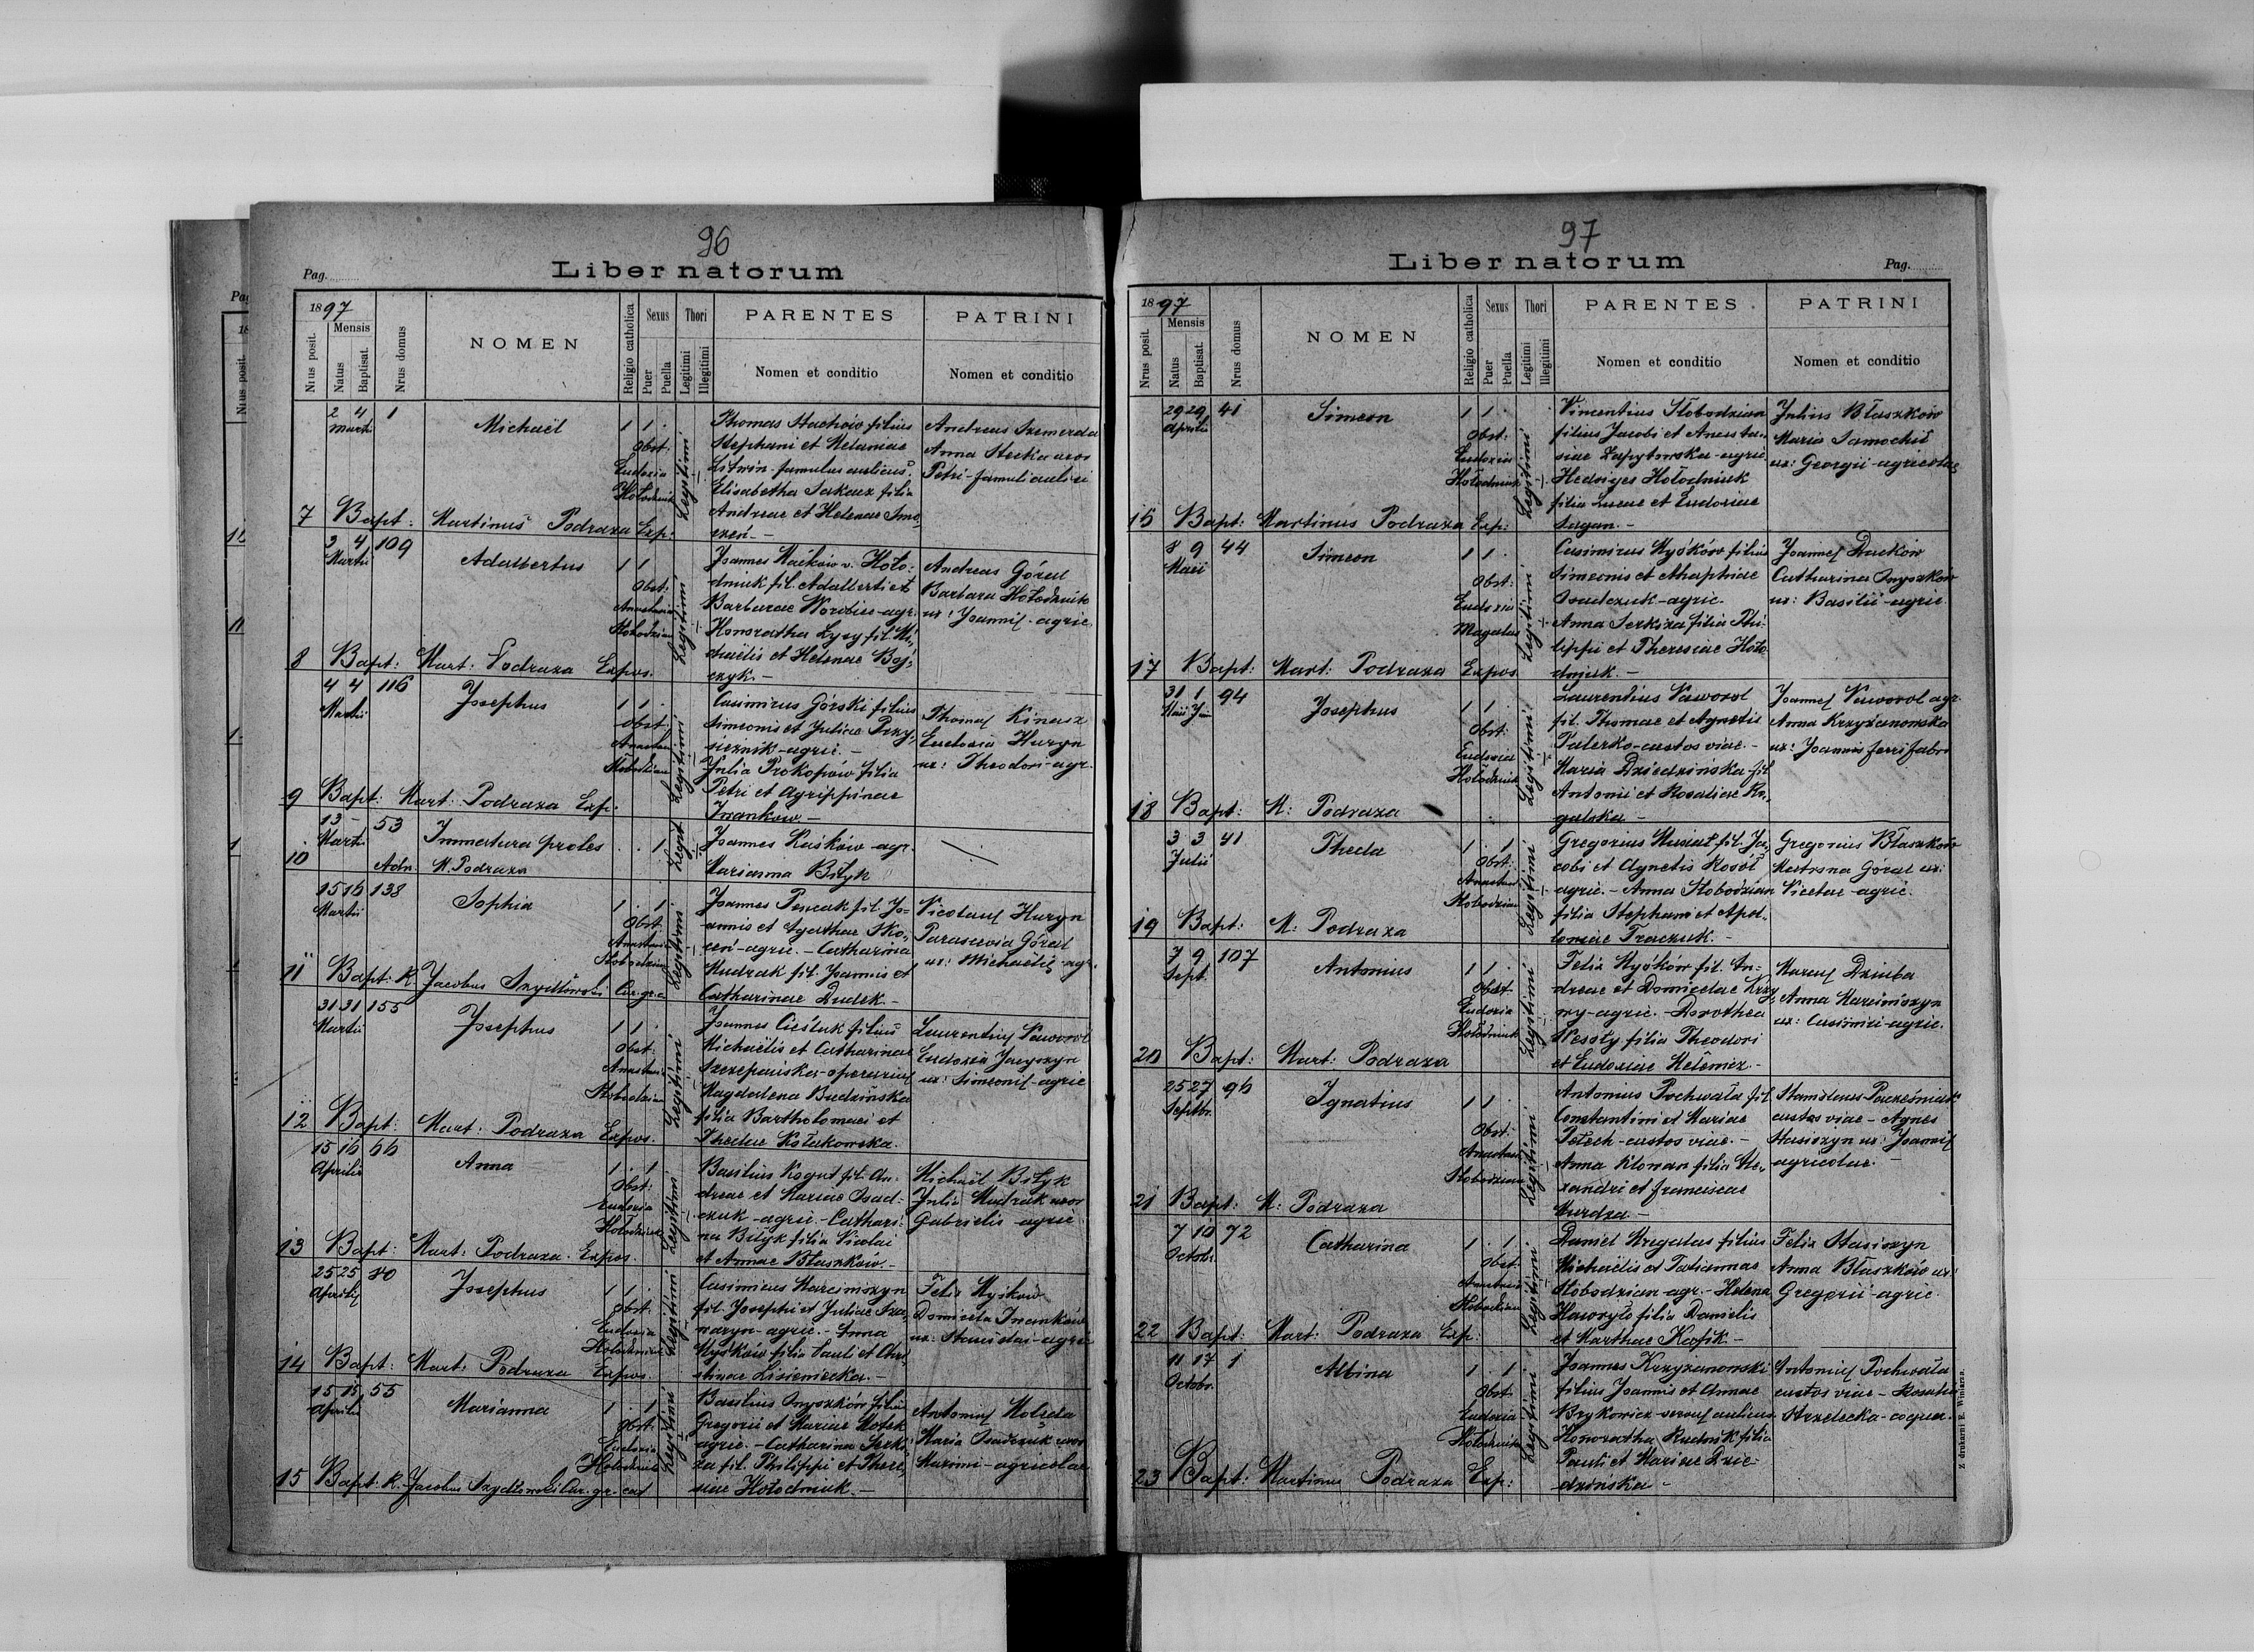 96
Pag.
Liber natorum
1897
Nrus posit.
Mensis
Natus
Baptisat.
Nrus domus
NOMEN
Religio catholica
Sexus
Puer
Puella
Thori
Legitimi
Illegitimi
PARENTES
Nomen et conditio
PATRINI
Nomen et conditio
7
2 4 1
Martii
Michaël
1 1 .
Obst:
Eudoxia
Hołodniuk
Legitimi
Thomas Stachów filius
Stephani et Melaniae
Litwin - famulus aulicus
Elisabetha Sakacz filia
Andreae et Helenae
Andreas Szemerda
Anna Sterka uxor
Petri - famuli aulici
Bapt: Martinus Podraza Exp:
8
3 4 109
Martii
Adalbertus
1 1
Obst:
Anastasia
Słobodzian
Legitimi
Joannes Maćków v. Hoło-
dniuk fil. Adalberti et
Barbarae Worobiec - agr.
Honoratha Łysy fil. Mi-
chaëlis et Helenae Boj-
czyk. -
Andreas Góral
Barbara Hołodniuk
ux: Joannis - agric.
Bapt: Mart: Podraza Expos.
9
4 4 116
Martii
Josephus
1 1 .
Obst:
Słobodzian
Legitimi
Casimirus Górski filius
Simeonis et Juliae Przy-
siężnik - agric. -
Julia Prokopów filia
Petri et Agrippinae
Iwanków. -
Thomas Kinasz
Eudoxia Huryn
ux: Theodori - agr.
Bapt: Mart: Podraza Exp.
10
13 - 53
Martii
Immatura proles
. . 1
Legit
Joannes Raśków - agr.
Marianna Biłyk
Adn. M. Podraza
11
15 16 138
Martii
Sophia
1 . 1
Obst:
Słobodzian
Legitimi
Joannes Pencak fil. Jo-
annis et Agathae Sko-
cen - agric. - Catharina
Kudrak fil. Joannis et
Catharinae Dudek. -
Nicolaus Huryn
Parascevia Góral
ux: Michaëlis - agr.
Bapt: R. Jacobus Szydłowski Cur. gr. c.
12
31 31 155
Martii
Josephus
1 1
Obst:
Słobodzian
Legitimi
Joannes Cieśluk filius
Michaëlis et Catharinae
Szczepańska - operarius
Magdalena Budzińska
filia Bartholomaei et
Theclae Kołakowska.
Laurentius Naworol
Eudoxia Jacyszyn
ux: Simeonis - agric
Bapt: Mart: Podraza Expos.
13
15 16 66
Aprilis
Anna
1 . 1
Obst:
Eudoxia
Legitimi
Basilius Kogut fil. An-
dreae et Mariae Osad-
czuk - agric. - Cathari-
na Biłyk filia Nicolai
et Annae Błaszków. -
Michaël Biłyk
Julia Kudrak uxor
Gabrielis agric.
Bapt: Mart: Podraza. Expos.
14
25 25 80
Aprilis
Josephus
1 1 .
Obst.
Eudoxia
Legitimi
Casimirus Marciniszyn
fil. Josephi et Juliae
agric. - Anna
Myśków filia Pauli et Chri-
stinae Lisieniecka. -
Felix Myśków
Domicela Iwanków
ux: Stanislai - agric
Bapt: Mart: Podraza Expos
15
15 15 55
Aprilis
Marianna
1 . 1
Obst.
Eudoxia
Hołodniuk
Legitimi
Basilius Onyszków filius
Gregorii et Mariae
agric. - Catharina Serki-
za fil. Philippi et There-
siae Hołodniuk. -
Antonius Holeda
Maria Osadczuk uxor
Maximi - agricolae
Bapt. R. Jacobus Szydłowski Cur. gr. cat
97
Liber natorum
Pag.
1897
Nrus posit.
Mensis
Natus
Baptisat.
Nrus domus
NOMEN
Religio catholica
Sexus
Puer
Puella
Thori
Legitimi
Illegitimi
PARENTES
Nomen et conditio
PATRINI
Nomen et conditio
15
29 29 41
Aprilis
Simeon
1 1 .
Obst:
Eudoxia
Hołodniuk
Legitimi
Vincentius Słobodzian
filius Jacobi et Anasta-
siae Łapytowska - agric
Hedviges Hołodniuk
filia Lucae et Eudoxiae
Sagan. -
Julius Błaszków
Maria Samochił
ux: Georgii - agricolae
Bapt: Martinus Podraza Exp:
17
8 9 44
Maii
Simeon
1 1 .
Obst:
Eudoxia
Magalas
Legitimi
Casimirus Myśków filius
Simeonis et Ahaphiae
Osadczuk - agric.
Anna Serkiza filia Phi-
lippi et Theresiae Hoło-
dniuk. -
Joannes Daćków
Catharina Onyszków
ux: Basilii - agric.
Bapt: Mart: Podraza Expos
18
31 1 94
Maii Jun
Josephus
1 1 .
Obst:
Eudoxia
Hołodniuk
Legitimi
Laurentius Naworol
fil. Thomae et Agnetis
Palerko - custos viae. -
Maria Dziedzińska fil.
Antonii et Rosaliae Ro-
galska -
Joannes Naworol agr.
Anna Krzyżanowska
ux: Joannis ferri fabri
Bapt: M: Podraza
19
3 3 41
Julii
Thecla
1 . 1
Obst:
Słobodzian
Legitimi
Gregorius Musiał fil. Ja-
cobi et Agnetis Kosół
agric. - Anna Słobodzian
filia Stephani et Apol-
loniae Traczuk. -
Gregorius Błaszków
Matrona Góral ux:
Nicetae - agric.
Bapt: M: Podraza
20
7 9 107
Sept.
Antonius
1 1 .
Obst
Eudoxia
Hołodniuk
Legitimi
Felix Myśków fil. An-
dreae et Domicelae Krzy-
ny - agric. - Dorothea
Wesoły filia Theodori
et Eudoxiae Melemicz -
Marcus Dziuba
Anna Marciniszyn
ux: Casimiri - agric.
Bapt: Mart: Podraza
21
25 27 96
Septbr.
Ignatius
1 1 .
Obst:
Słobodzian
Legitimi
Antonius Pochwała fil.
Constantini et Mariae
Petech - custos viae. -
Anna Kloman filia Ale-
xandri et Franciscae
Murdza -
Stanislaus Pacześniak
custos viae - Agnes
Stasiszyn ux: Joannis
agricolae. -
Bapt: M: Podraza
22
7 10 72
Octobr.
Catharina
1 . 1
Obst:
Słobodzian
Legitimi
Daniel Megalas filius
Michaëlis et Tatiannae
Słobodzian - agr. - Helena
Haworyło filia Danielis
et Marthae Kafik -
Felix Stasiszyn
Anna Błaszków ux:
Gregorii - agric.
Bapt: Mart: Podraza Exp:
23
11 17 1
Octobr.
Albina
1 . 1
Obst:
Eudoxia
Hołodniuk
Legitimi
Joannes Krzyżanowski
filius Joannis et Annae
Brykowicz - servus aulicus
Honoratha Rudnik filia
Pauli et Mariae Dzie-
dzińska -
Antonius Pochwała
custos viae - Rosalia
Strzelecka - coqua.
Bapt: Martinus Podraza Exp:
Z drukarni E. Winiarza.